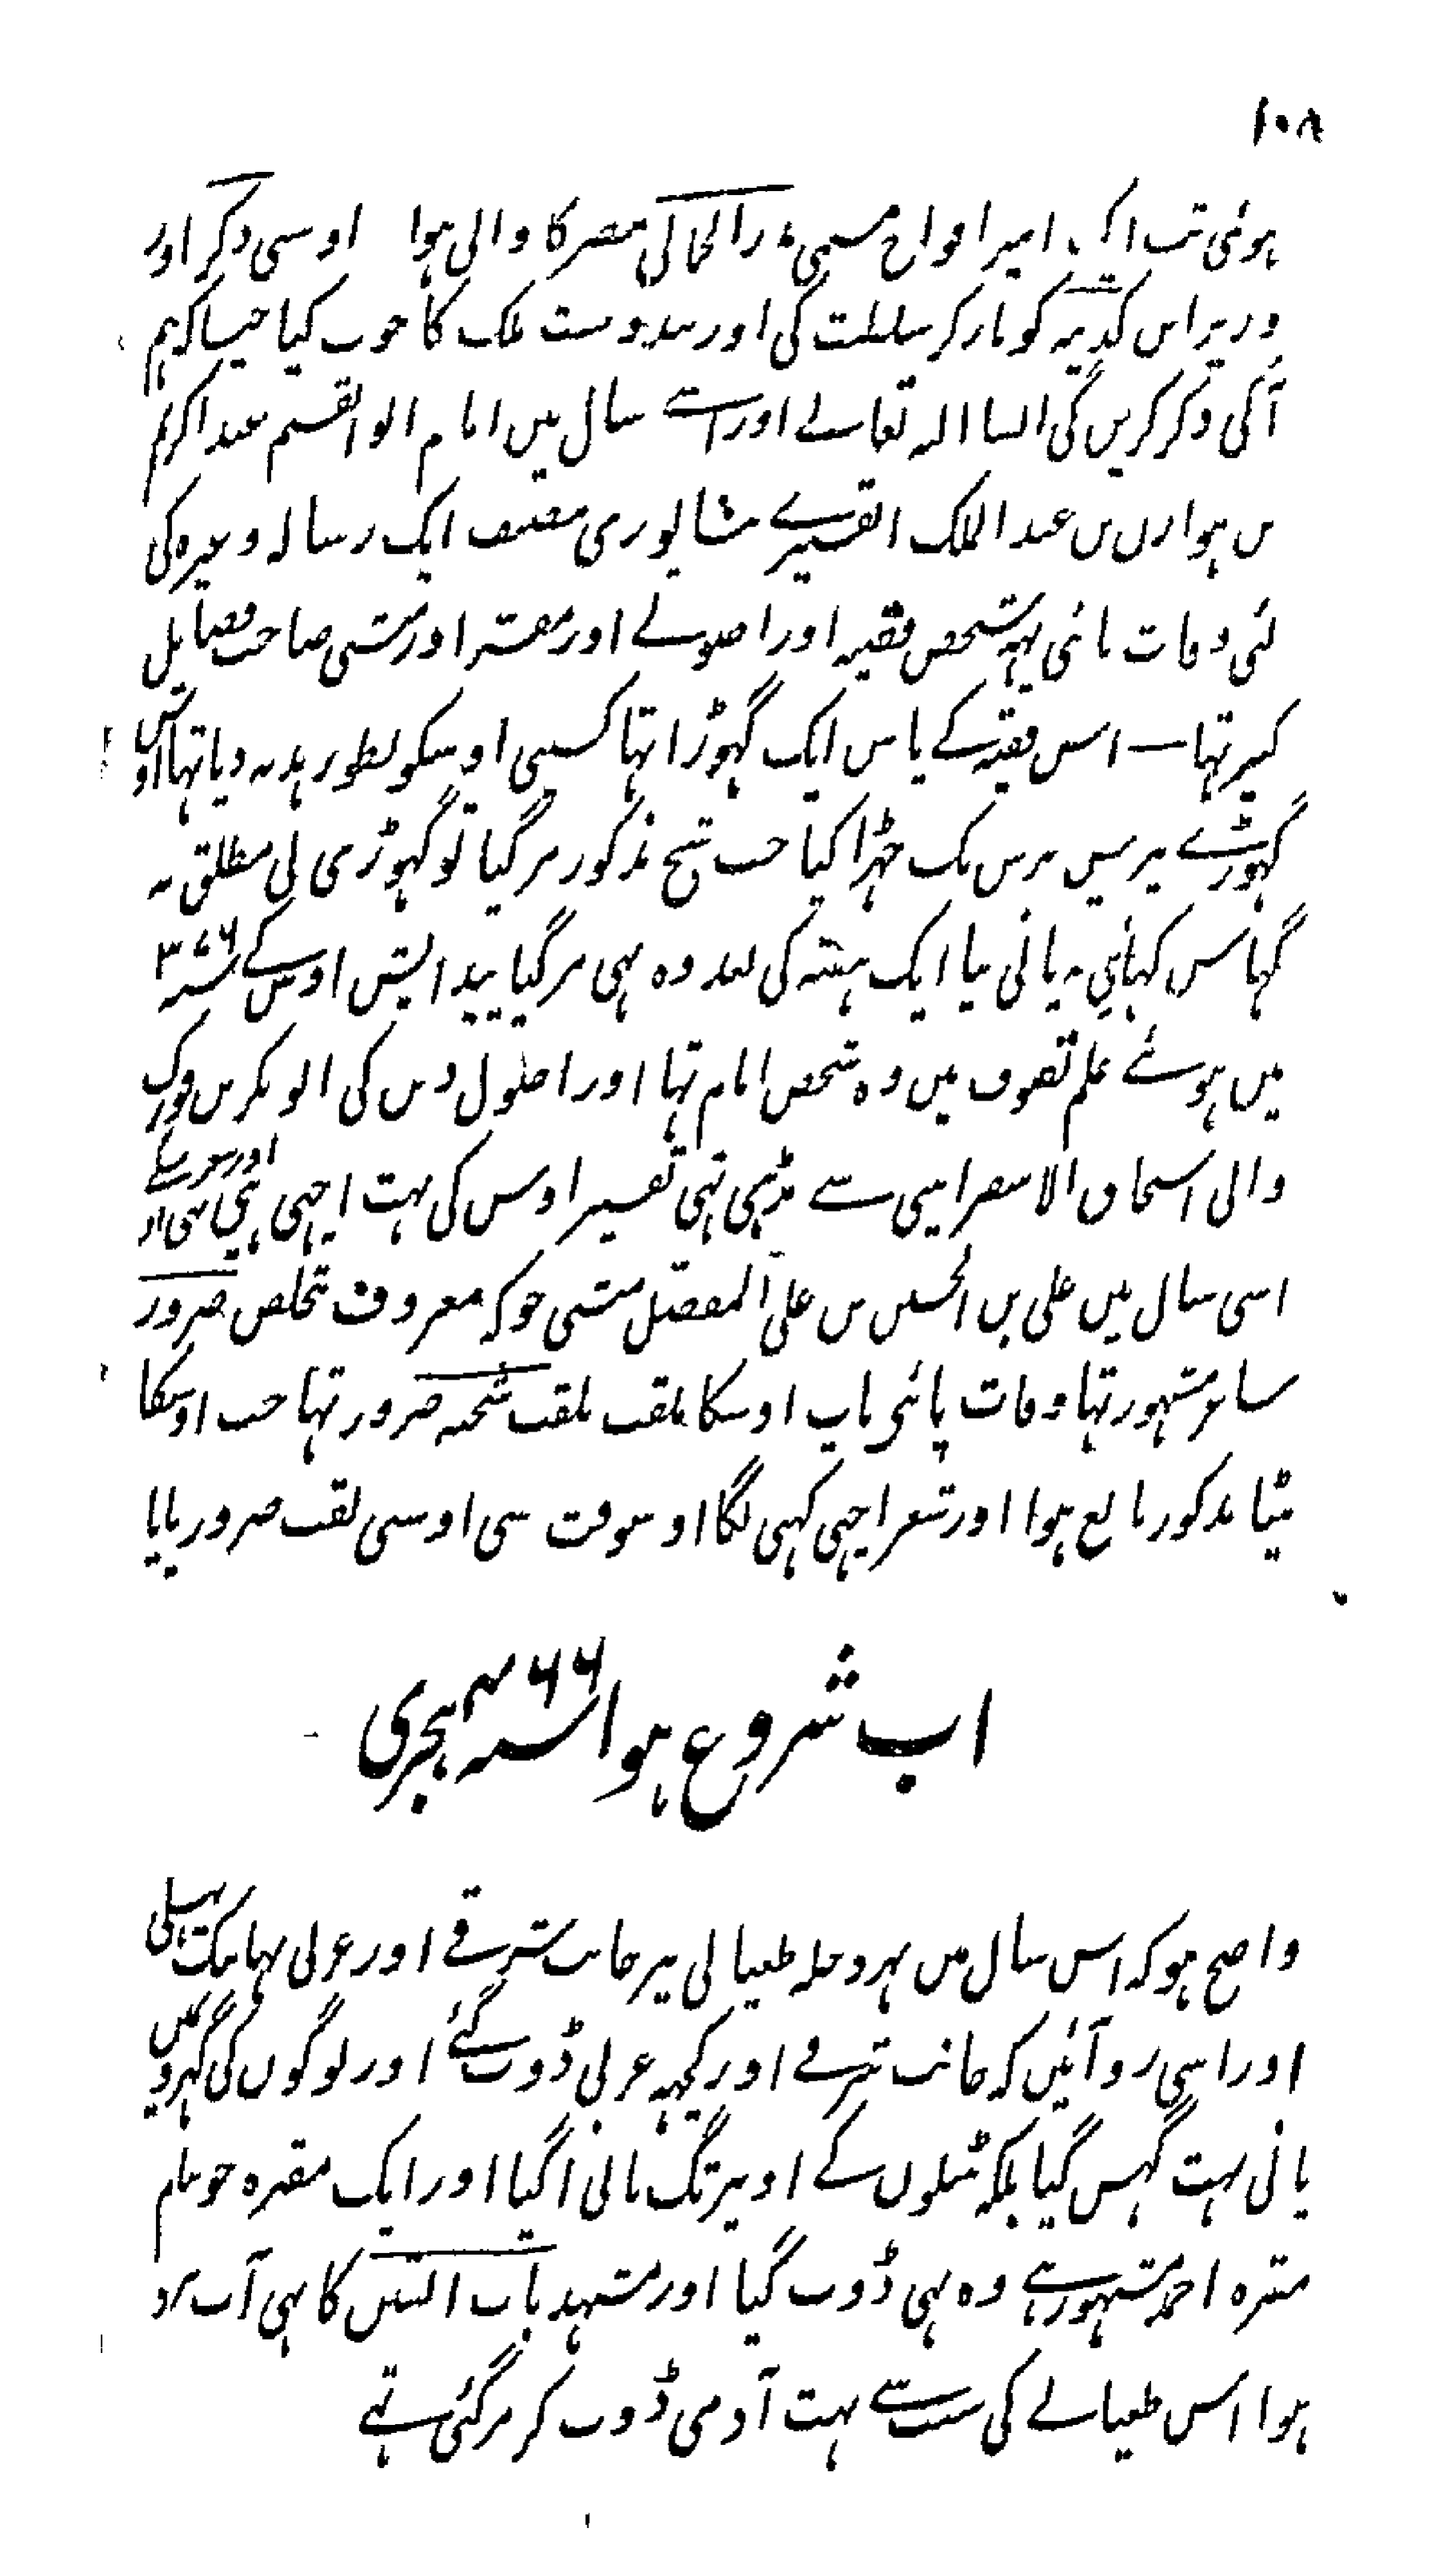 ۱۰۸
ہوئی تب ایک امیر افواج مسمی بدر الجمالی مصر کا والی ہوا اوسی دکر اور
وریر اس کدینہ کو مار کر سلطنت کی اور بندوبست ملک کا خوب کیا جیسا کہ ہم
آگی ذکر کریں گی انشا اللہ تعالے اور اسے سال میں امام ابو القسم عبد الکریم
بن ہوازن بن عبد الملک القشیرے نیشاپوری مصنف ایک رسالہ وغیرہ کی
نی وفات پائی یہہ شخص فقیہ اور اصولے اور مفسر اور منشی صاحب فضایل
کبیر تہا — اس فقیہ کے پاس ایک گہوڑا تہا کسی اوسکو بطور ہدیہ دیا تہا اوس
گہوڑے پر بیس برس تک چڑہا کیا جب شیخ مذکور مر گیا تو گہوڑی نی مطلق نہ
گہاس کہائی نہ پانی پیا ایک ہفتہ کی بعد وہ بہی مر گیا پیدایش اوس کے سنہ ۳۷۶
میں ہوئے علم تصوف میں وہ شخص امام تہا اور اصول دین کی ابو بکر بن فورک
والی اسحاق الاسفراینی سے پڑہی تہی تفسیر اوس کی بہت اچہی ہی اور شعر بہی
اسی سال میں علی بن الحسین بن علی المفضل منشی جو کہ معروف تخلص ضرور
ساتہ مشہور تہا وفات پائی باپ اوسکا ملقب ملقب شحمہ ضرور تہا جب اوسکا
بیٹا مذکور بالغ ہوا اور شعر اچہی کہی لگا اوسوقت سی اوسی لقب ضرور پایا
اب شروع ہوا سنہ ۴۶۶ ہجری
واضح ہو کہ اس سال میں بہر دجلہ طغیانی پر جانب شرقے اور غربی بہا تک پہیلی
اور ایسی رو آئیں کہ جانب شرقے اور کچہہ غربی ڈوب گئے اور لوگوں کی گہروں میں
پانی بہت گہس گیا بلکہ ٹیلوں کے اوپر تک پانی آ گیا اور ایک مقبرہ جو بنام
مقبرہ احمد مشہور ہے وہ بہی ڈوب گیا اور مشہد باب التین کا بہی آب برد
ہوا اس طغیانے کی سبب سے بہت آدمی ڈوب کر مر گئی تہے